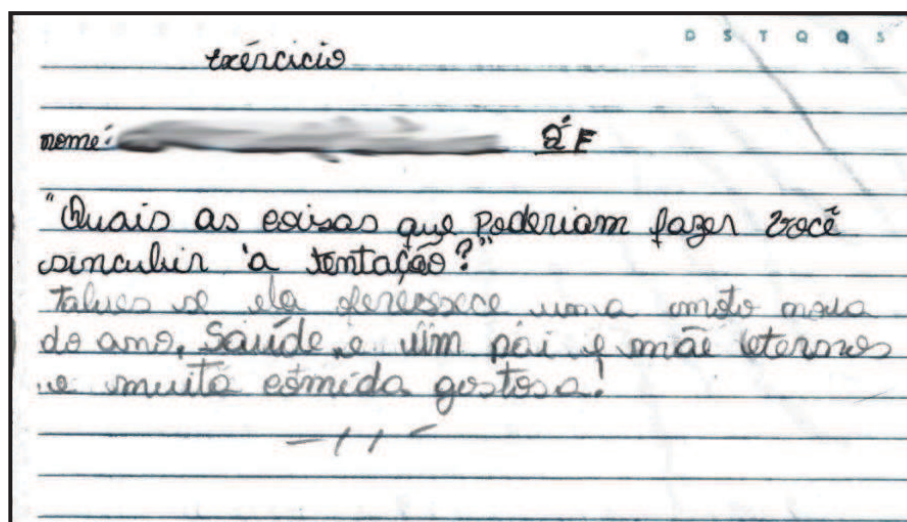 D S T Q Q S
exércicio
nome: 2ª F
"Quais as coisas que Poderiam fazer você
sincubir a tentação?"
Talves se ela oferessece uma moto nova
do ano, Saúde e um pai e mãe eternos
e muita comida gostosa!